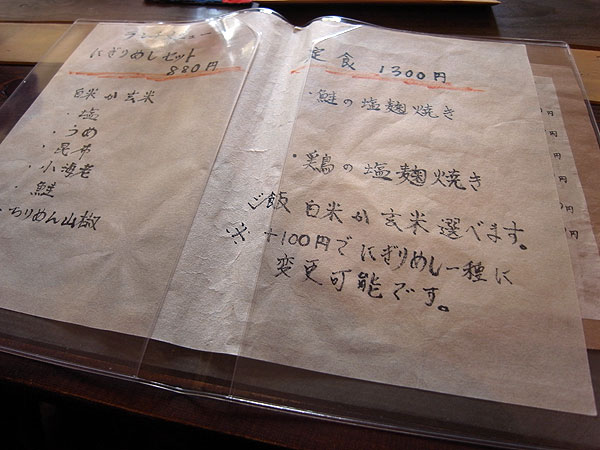 ランチメニュー
にぎりめしセット
880円
白米か玄米
・塩
・うめ
・昆布
・小海老
・鮭
・ちりめん山椒
定食 1300円
・鮭の塩麹焼き
・鶏の塩麹焼き
ご飯 白米か玄米選べます。
※ +100円でにぎりめし一種に
変更可能です。